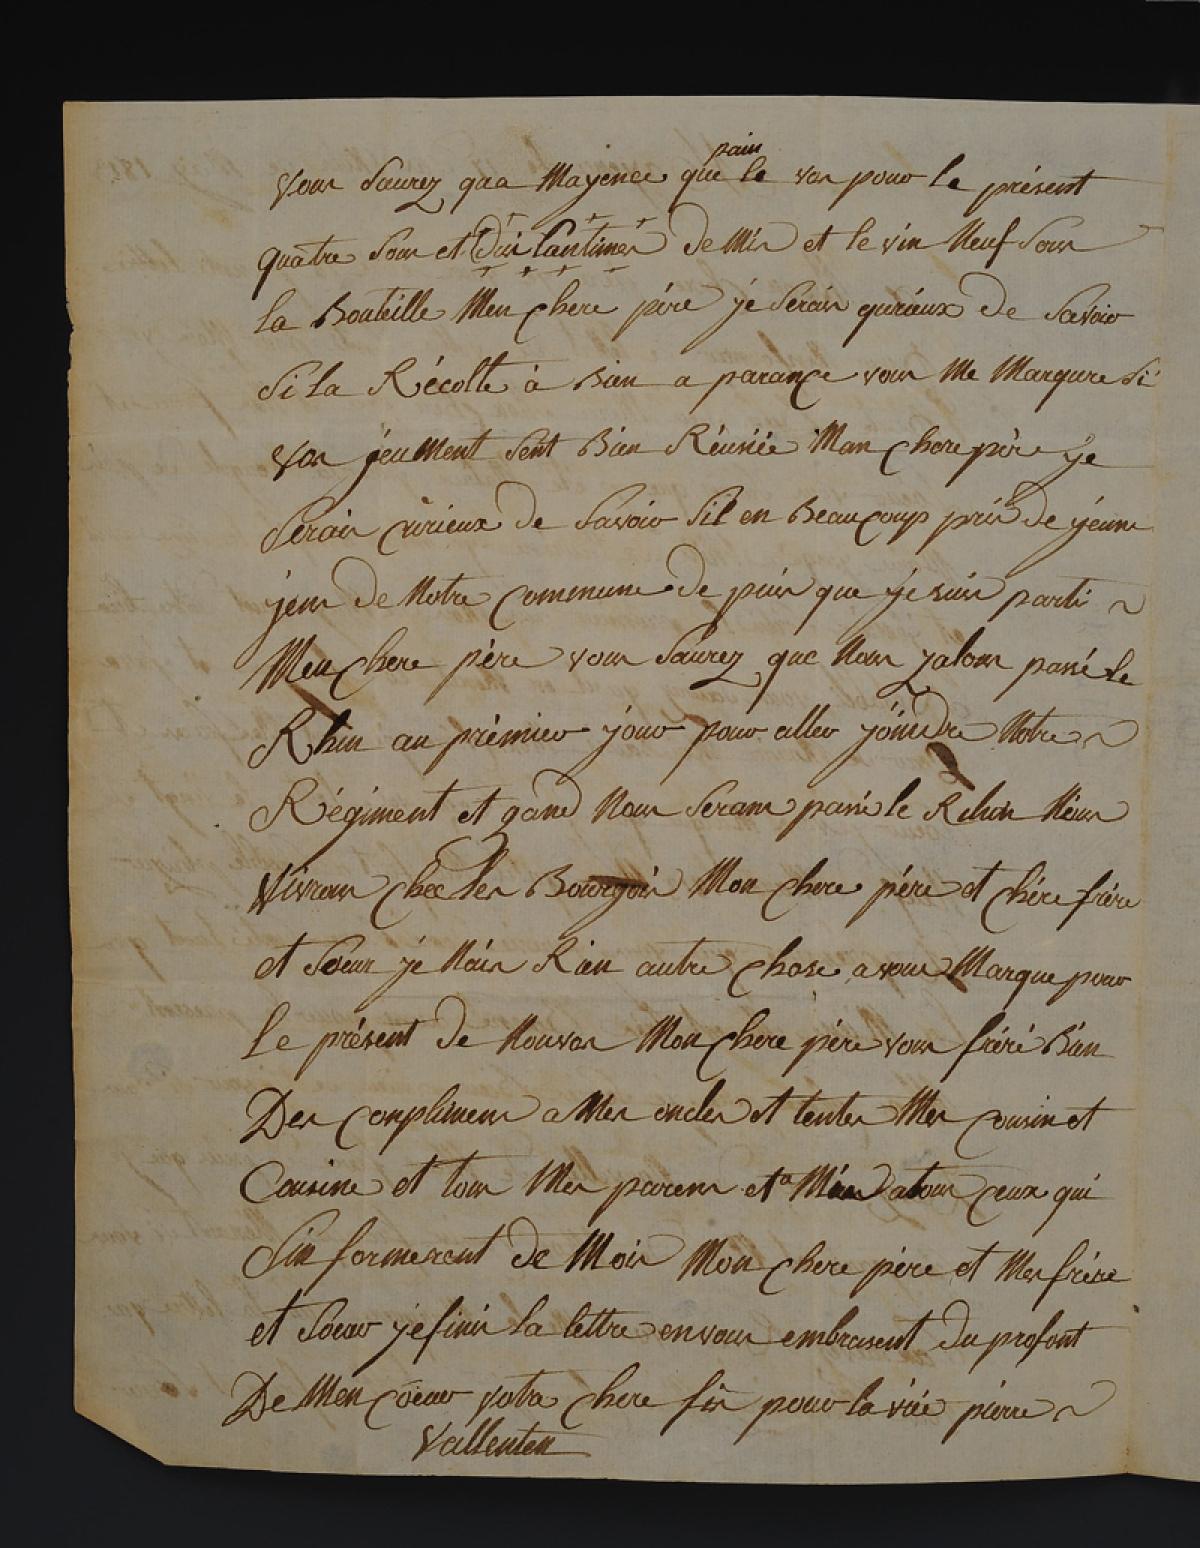 vous Saurez qua Mayence que pain le vos pour le présent
quatre Sous et dis Santimes de Mis et le vin Neuf Sous
la Bouteille Mon chere pére je Serais qurieux de Savoir
Si la Récolte à Bien a parance vous Me Marqure Si
vos jeument Sont Bien Réusiée Mon chere pére je
Serais curieux de Savoir Sil en Beaucoup pris de jéune
jens de Notre commune de puis que je suis parti
Mon chere pére vous Saurez que Nous zalons passé le
Rhin au prémier jour pour aller jóindre Notre
Régiment et gand Nous Serans passé le Rehin Nous
vivrons chéc les Bourgois Mon chere pére et chére frére
et Soeur je Náis Rien autre chose a vous Marque pour
le présent de Nouvos Mon chere pére vous féré Bien
Des conplimens a Mes oncles et tentes Mes cousin et
Cousine et tous Mes parens et a atous ceux qui
Sin formeront de Mois Mon chere pére et Mes frére
et Soeur je finis la lettre en vous embrasent du profont
De Mon coeur votre chere fis pour la viée piérre
Vallenten